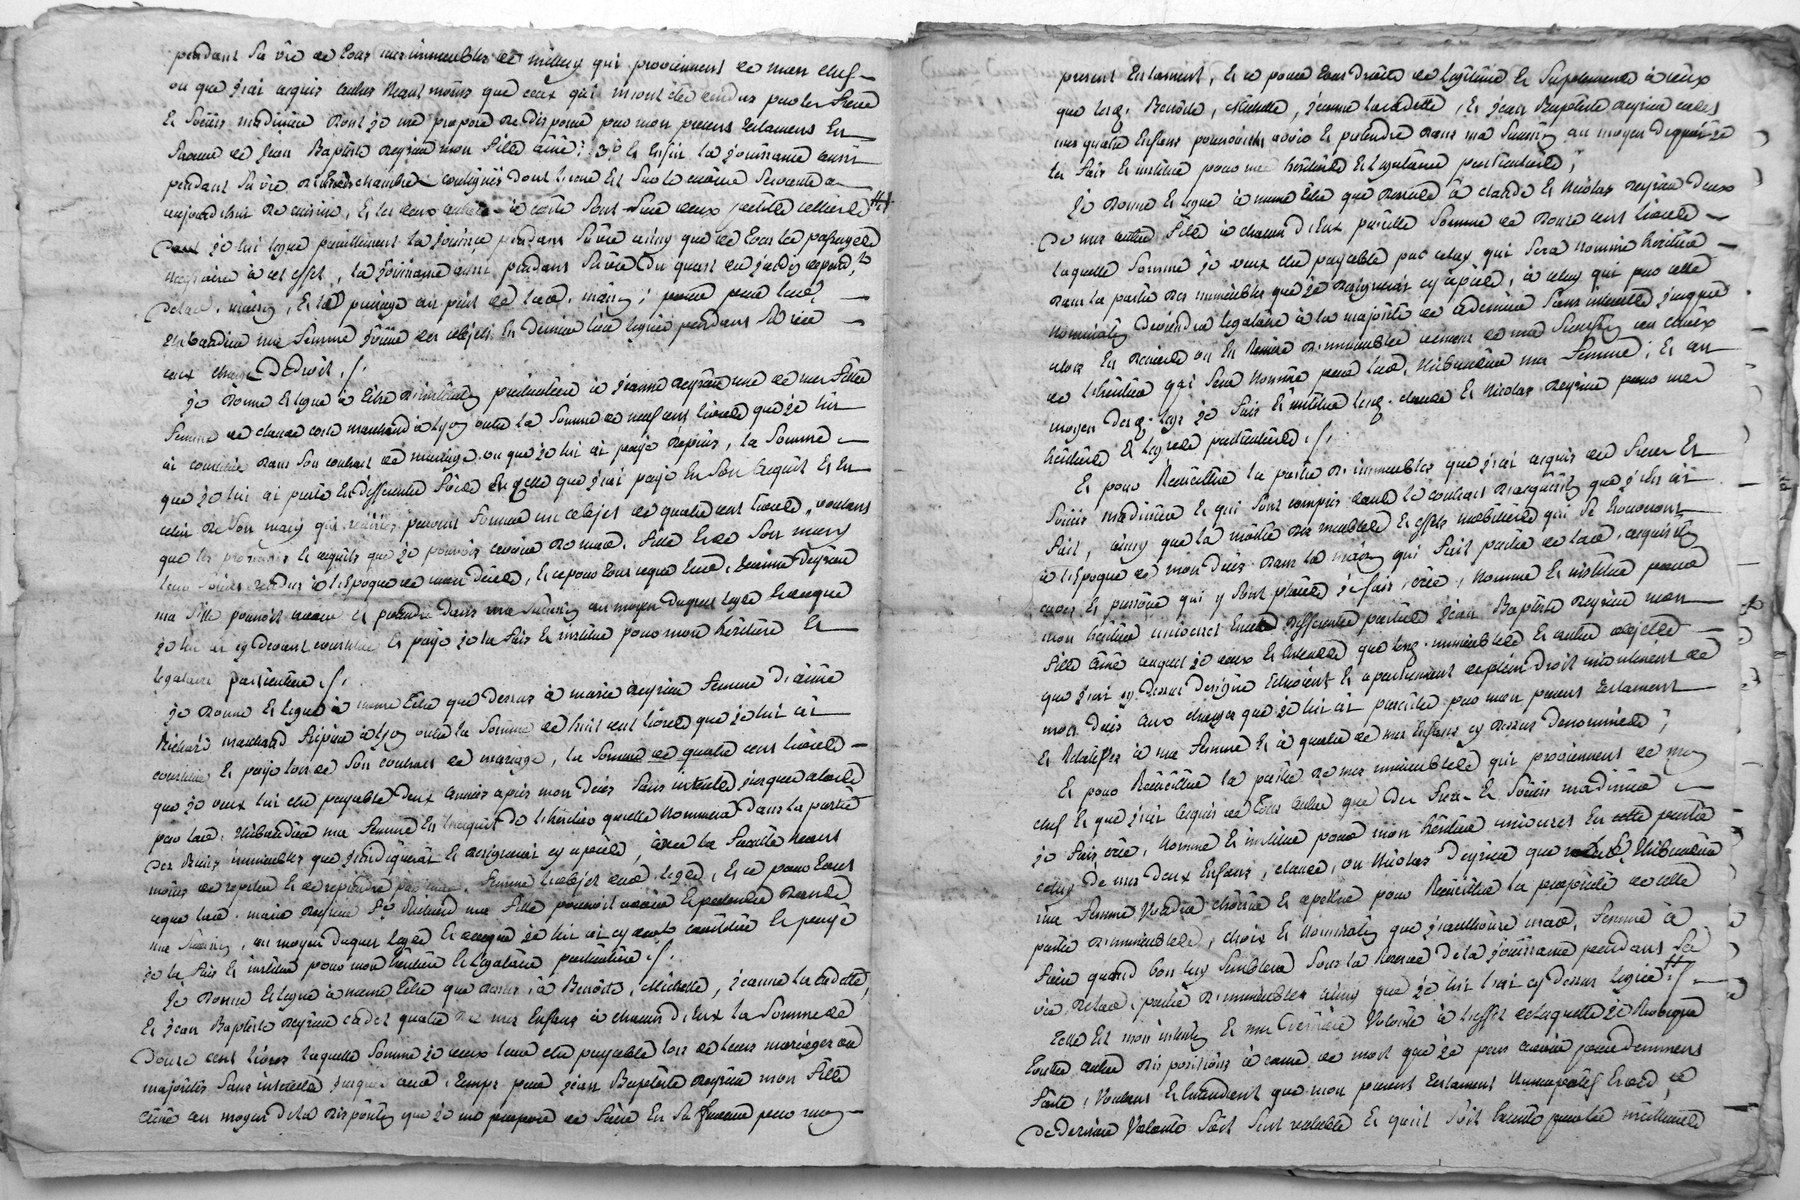 pendant sa vie de tous mes immeubles de millery qui proviennent de mon chef
ou que j'ai acquis autres neantmoins que ceux qui m'ont eté vendus par les frere
et soeurs madiniere dont je me propose de disposer par mon present testament en
faveur de jean Baptiste deyrieu mon fils ainé; 3º et enfin la jouissance aussi
pendant sa vie de chambres contigues dont l'une est sur la cuisine servante
aujourdhui de cuisine, et les deux autres à coté sont sur deux petits celliers
dont je lui legue pareillement la jouisce pendant sa vie ainsy que de tous les passages
necessaire à cet effet, la jouissance aussi pendant sa vie du quart du jardin
de lade. maison, et le puisage au puits de lade. maison; pour par lade
ma femme jouir des objets en dernier lieu legués pendant sa vie
aux charges de droit ./.
je donne et legue à titre d'institution particuliere à jeanne deyrieu une de mes filles
femme de claude coste marchand à lyon outre la somme de neuf cent livres que je lui
ai constitué dans son contrat de mariage ou que je lui ai payé depuis, la somme
que je lui ai preté en differentes fois et celle que j'ai payé en son acquit et en
celui de son mary qui reunies peuvent former un objet de quatre cent livres, voulant
que les promesses et acquits que je pourrois avoir de made. fille et de son mary
leur soient rendus à l'epoque de mon décès, et ce pour tout ce que lade. jeanne deyrieu
ma fille pourroit avoir et pretendre dans ma succession au moyen duquel legs et de ce que
je lui ai cy devant constitué et payé je la fais et institue pour mon heritiere et
legataire particuliere ./.
je donne et legue à meme titre que dessus à marie deyrieu femme d'aimé
Richard marchand fripier à lyon outre la somme de huit cent livres que je lui ai
constitué et payé lors de son contrat de mariage, la somme de quatre cent livres
que je veux lui etre payable deux années après mon décès sans interets jusques alors
par lade. ma femme en l'acquit de l'héritier qu'elle nommera dans la partie
des biens immeubles que j'indiquerai et designerai cy après, avec la faculté neant
moins de repeter et de reprendre par made. femme l'objet dud. legs, et ce pour tout
ce que lade. marie deyrieu fe Richard ma fille pourroit avoir et pretendre dans
ma succession, au moyen duquel legs et de ce que je lui ai cy devant constitué et payé
je la fais et institue pour mon heritiere et legataire particuliere ./.
je donne et legue à meme titre que dessus, à Benoite, Michelle, jeanne la cadette,
et jean Baptiste deyrieu cadet quatre de mes enfans à chacun d'eux la somme de
douze cent livres laquelle somme je veux leur etre payable lors de leurs mariages ou
majorités sans interets jusques aud. temps par jean Baptiste deyrieu mon fils
ainé au moyen de la disposition que je me propose de faire en sa faveur par mon
present testament, et ce pour tous droits de legitime et suplements à iceux
que lesq. Benoite, Michelle, jeanne la cadette, et jean Baptiste deyrieu cadet
mes quatre enfans pourroient avoir et pretendre dans ma succession au moyen de quoi je
les fais et institue pour mes heritiers et legataires particuliers;
je donne et legue à meme titre que dessus à claude et Nicolas deyrieu deux
de mes autres fils à chacun d'eux pareille somme de douze cent livres
laquelle somme je veux etre payable par celuy qui sera nommé heritier
dans la partie des immeubles que je designerai cy après, à celuy qui par cette
nomination deviendra legataire à la majorité de ce dernier sans interets jusques
alors en deniers ou en remise d'immeubles venant de ma succession au choix
de l'heritier qui sera nommé par lade. ma femme; et au
moyen desq. legs je fais et institue lesq. claude et Nicolas deyrieu pour mes
heritiers et legres particuliers ./.
Et pour recueillir la partie d'immeubles que j'ai acquis des frere et
soeurs madiniere et qui sont compris dans le contrat d'acquisition que j'en ai
fait, ainsy que la moitié des meubles et effets mobiliers qui se trouveront
à l'époque de mon décès dans la maison qui fait partie de lade. acquisition
cuves et pressoir qui y sont placés je fais, crée, nomme et institue pour
mon heritier universel en ces differentes parties jean Baptiste deyrieu mon
fils ainé auquel je veux et entends que lesq. immeubles et autres objets
que j'ai cy dessus designé echoient et apartiennent de plein droit incontinent
mon décès aux charges que je lui ai prescrites par mon present testament
et relatifs à ma femme et à quatre de mes enfans cy dessus denommés;
Et pour recueillir la partie de mes immeubles qui proviennent de mon
chef et que j'ai acquis de tous autres que des frere et soeurs madiniere
je fais, crée, nomme et institue pour mon heritier universel en cette partie
celuy de mes deux enfans, claude, ou Nicolas deyrieu que
ma femme voudra choisir et apeller pour recueillir la propriété de cette
partie d'immeubles, choix et nomination que j'authorise made. femme à
faire quand bon luy semblera sous la reserve de la jouissance pendant sa
vie de lade. partie d'immeubles ainsy que je lui l'ai cy dessus legué ./.
telle est mon intention et ma derniere volonté à l'effet de laquelle je revoque
toutes autres dispositions à cause de mort que je puis avoir precedemment
faites, voulant et entendant que mon present testament nuncupatif et ord. de
de derniere volonté soit seul valable et qu'il soit executé par les meilleures